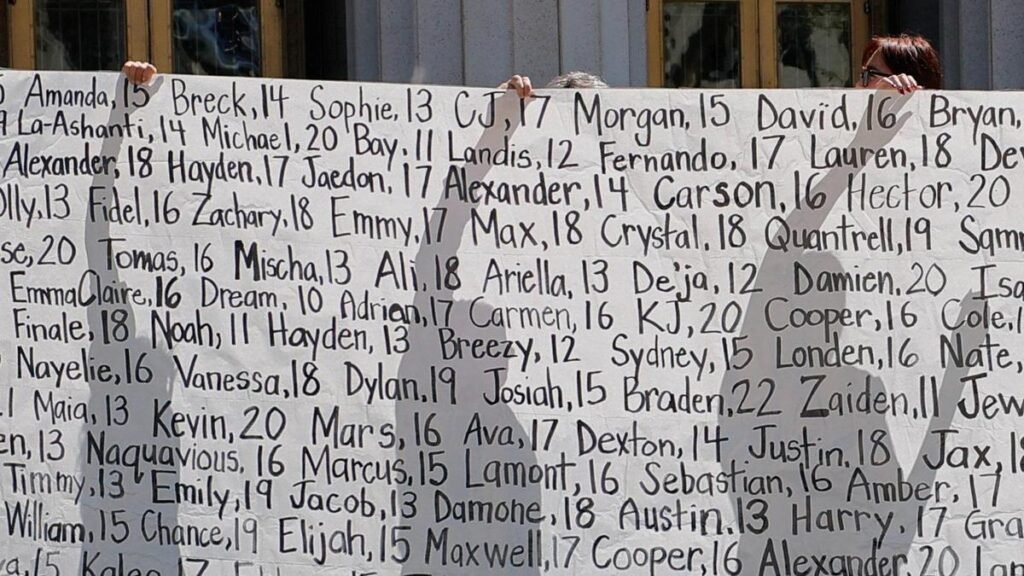 Amanda, 15 Breck, 14 Sophie, 13 CJ, 17 Morgan, 15 David, 16 Bryan,
La-Ashanti, 14 Michael, 20 Bay, 11 Landis, 12 Fernando, 17 Lauren, 18
Alexander, 18 Hayden, 17 Jaedon, 17 Alexander, 14 Carson, 16 Hector, 20
Olly, 13 Fidel, 16 Zachary, 18 Emmy, 17 Max, 18 Crystal, 18 Quantrell, 19
20 Tomas, 16 Mischa, 13 Ali, 18 Ariella, 13 De'ja, 12 Damien, 20
EmmaClaire, 16 Dream, 10 Adrien, 17 Carmen, 16 KJ, 20 Cooper, 16 Cole,
Finale, 18 Noah, 11 Hayden, 13 Breezy, 12 Sydney, 15 Londen, 16 Nate,
Nayelie, 16 Vanessa, 18 Dylan, 19 Josiah, 15 Braden, 22 Zaiden, 11
Maia, 13 Kevin, 20 Mars, 16 Ava, 17 Dexton, 14 Justin, 18 Jax,
13 Naquavious, 16 Marcus, 15 Lamont, 16 Sebastian, 16 Amber, 17
Timmy, 13 Emily, 19 Jacob, 13 Damone, 18 Austin, 13 Harry, 17
William, 15 Chance, 19 Elijah, 15 Maxwell, 17 Cooper, 16 Alexander, 20
15